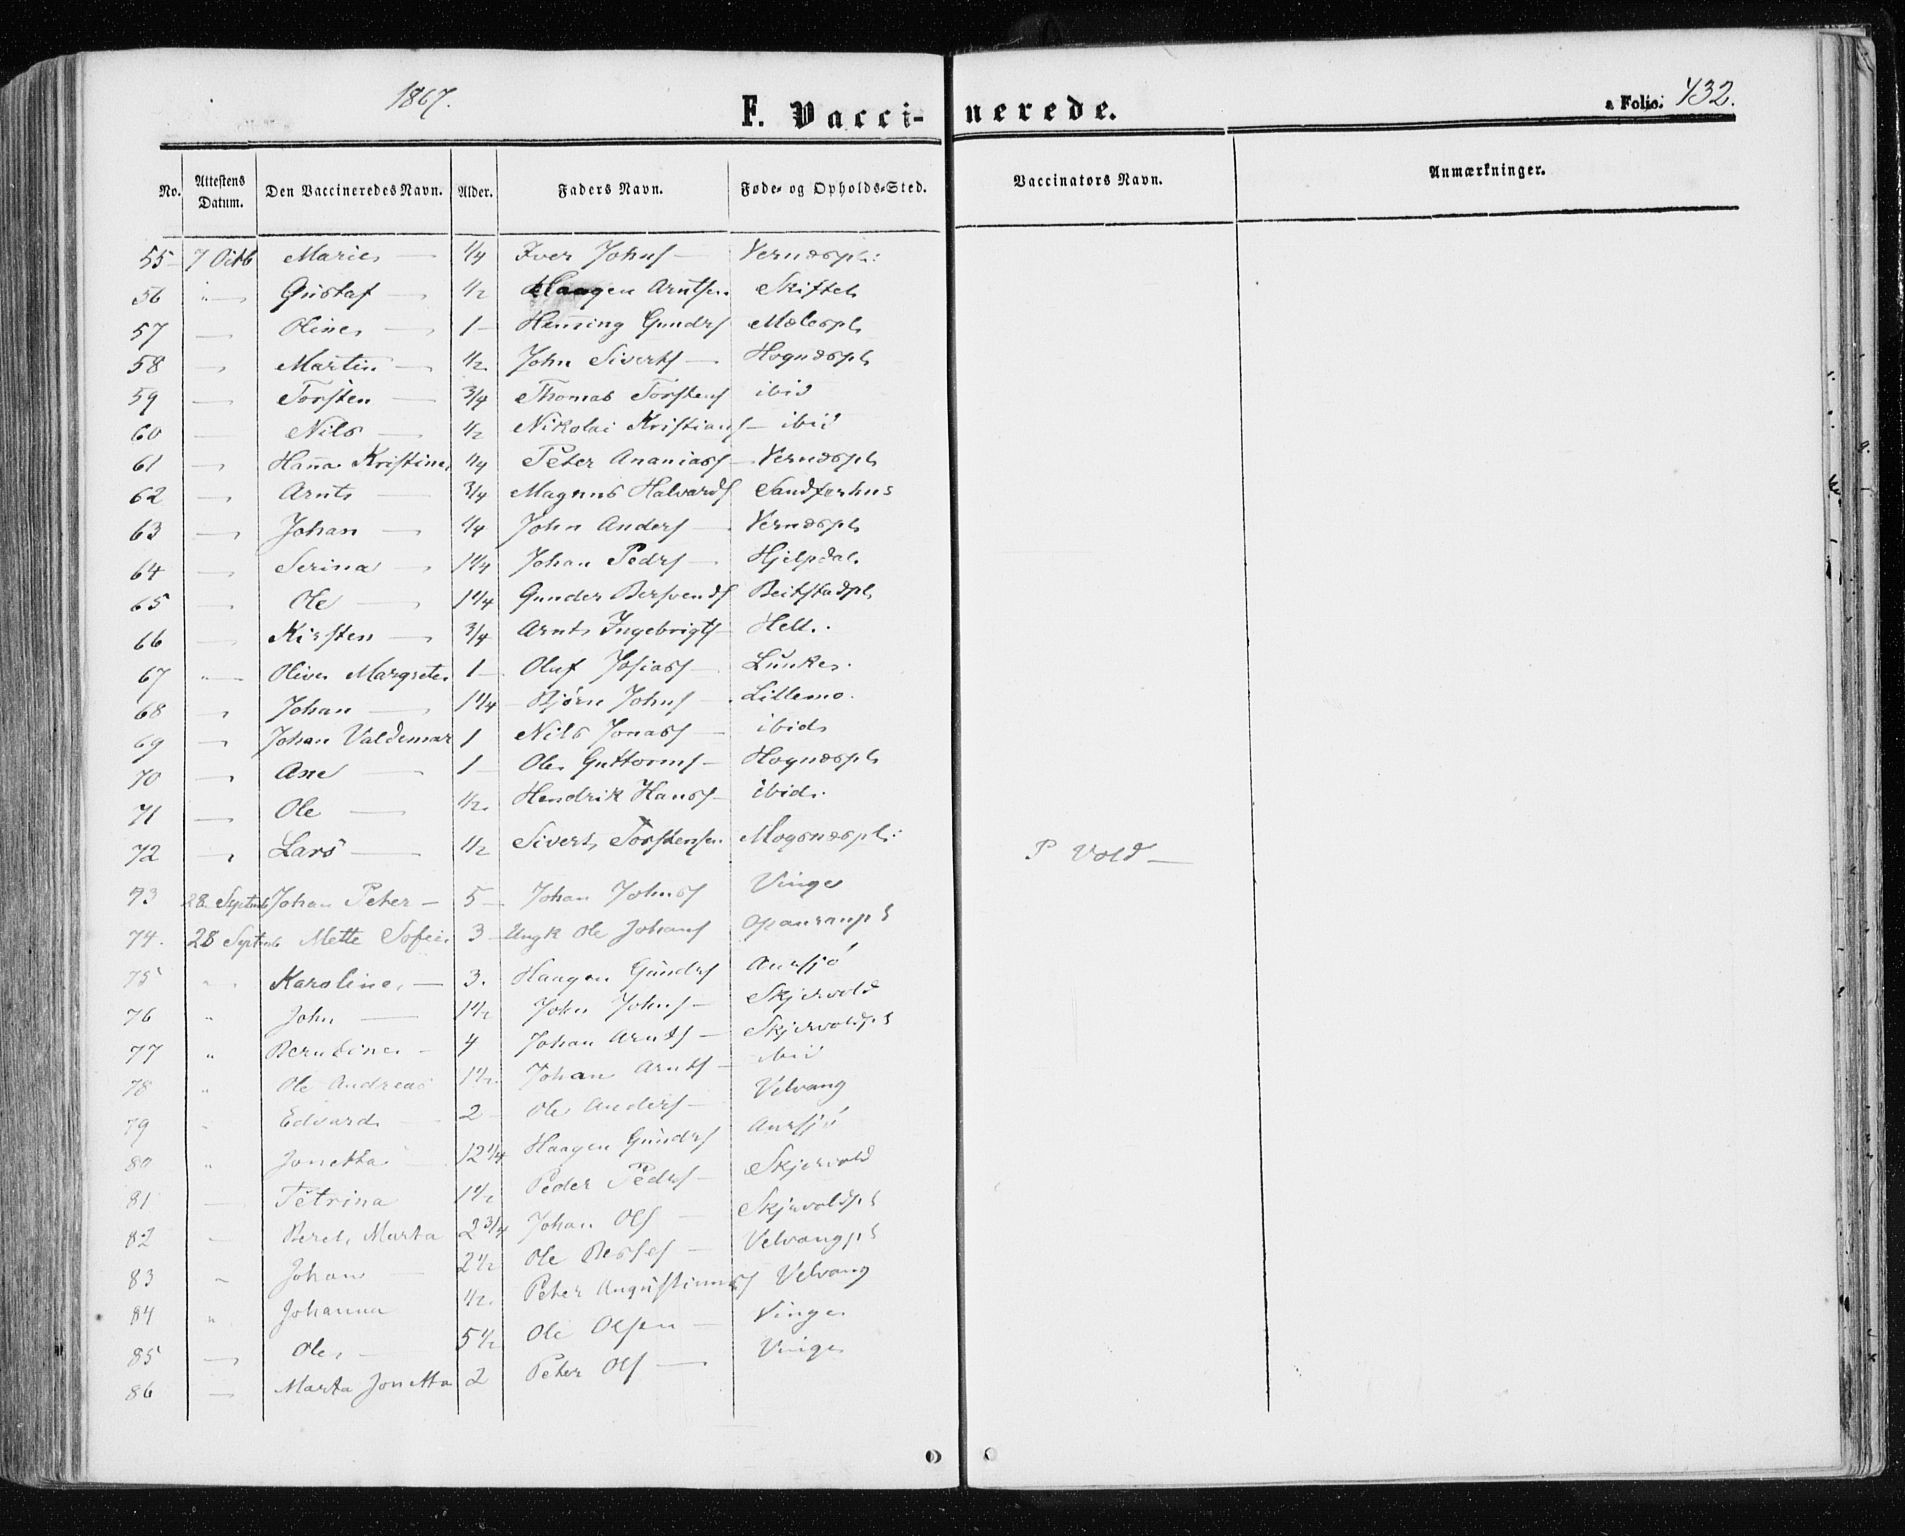 1867.
F. Vaccinerede.
a Folio. 432.
No. Attestens Datum. Den Vaccineredes Navn. Alder. Faders Navn. Føde- og Opholds-Sted. Vaccinators Navn. Anmærkninger.
55 7 Octb Marie — 1/4 Iver Johns — Vernæspl:
56 " — Gustaf — 1/2 Haagen Arntsen Skiftel
57 — Oline — 1 — Henning Gunders Mælespl
58 — Martin — 1/2 John Siverts — Hognæspl
59 — Torsten — 3/4 Thomas Torstens ibid
60 — Nils — 1/2 Nikolai Kristians — ibid
61 — Hanna Kristine 1/4 Peter Ananiass — Vernæspl
62 — Arnt — 3/4 Magnus Halvards Sandferhus
63 — Johan — 1/4 John Anders — Vernæspl
64 — Serina — 1 1/4 Johan Peders — Hjelpdal
65 — Ole — 1 1/4 Gunder Bersvends Beitstadpl
66 — Kirsten — 3/4 Arnt Ingebrigts — Hell.
67 " — Oline Margrete 1 — Oluf Josiass — Lunke.
68 " — Johan — 1 1/4 Bjørn Johns — Lillemo.
69 — Johan Valdemar 1 Nils Jonass — ibid
70 — Ane — 1 — Ole Guttorms — Hognæspl
71 — Ole — 1/2. Hendrik Hanss — ibid.
72 — Lars — 1/2 Sivert Torstensen Mogsnæspl: P Vold —
73 28 Septmb Johan Peter — 5 — Johan Johns Vinge
74. 28 Septmb Mette Sofie 3 — Ungk Ole Johans
75 " Karoline. — 3. Haagen Gunders Auersjø
76 " John — 1 1/2 John Johns — Skjervold
77 " Berntine — 4 Johan Arnts — Skjervoldpl
78 " Ole Andreas 1 1/2 Johan Arnts — ibid
79 " Edvard — 2 — Ole Anders — Velvang
80 " Jonetta — 12 1/4 Haagen Gunders Auersjø
81 — Petrina 1 1/2 Peder Peders — Skjervold
82 — Beret Marta 2 3/4 Johan Ols — Skjervoldpl
83 " Johan — 2 1/2 Ole — Velvangpl
84 " Johanna 1/2. Peter Augustinus Velvang
85 — Ole — 5 1/2 Ole Olsen — Vinge
86 — Marta Jonetta 2 Peter Ols — Vinge